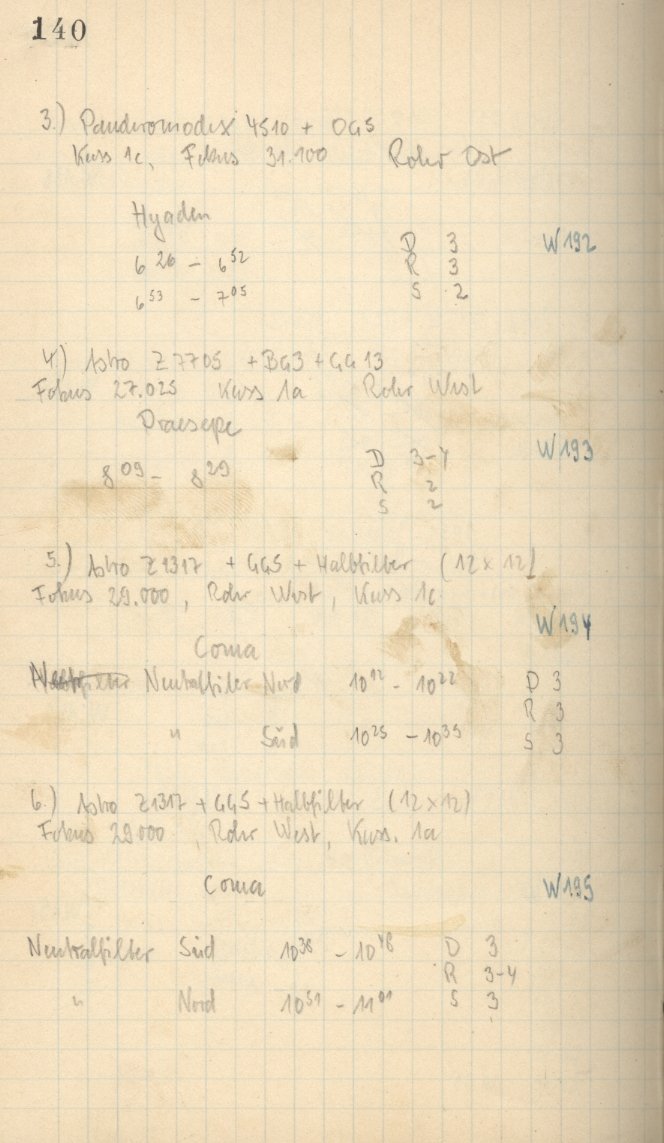 140
3.) Panchromodix 4510 + OG5
Kass 1c, Fokus 31.100 Rohr Ost
Hyaden
6 26 – 6 52 D 3 W192
R 3
6 53 – 7 05 S 2
4.) Astro Z 7705 + BG3 + GG 13
Fokus 27.025 Kass 1a Rohr West
Praesepe
8 09 – 8 29 D 3-4 W193
R 2
S 2
5.) Astro Z1317 + GG5 + Halbfilter (12 x 12)
Fokus 29.000, Rohr West, Kass 1c
W194
Coma
Neutralfilter Nord 10 12 - 10 22 D 3
R 3
" Süd 10 25 - 10 35 S 3
6.) Astro Z1317 + GG5 + Halbfilter (12 x 12)
Fokus 29000, Rohr West, Kass. 1a
Coma W195
Neutralfilter Süd 10 38 - 10 48 D 3
R 3-4
" Nord 10 51 - 11 01 S 3